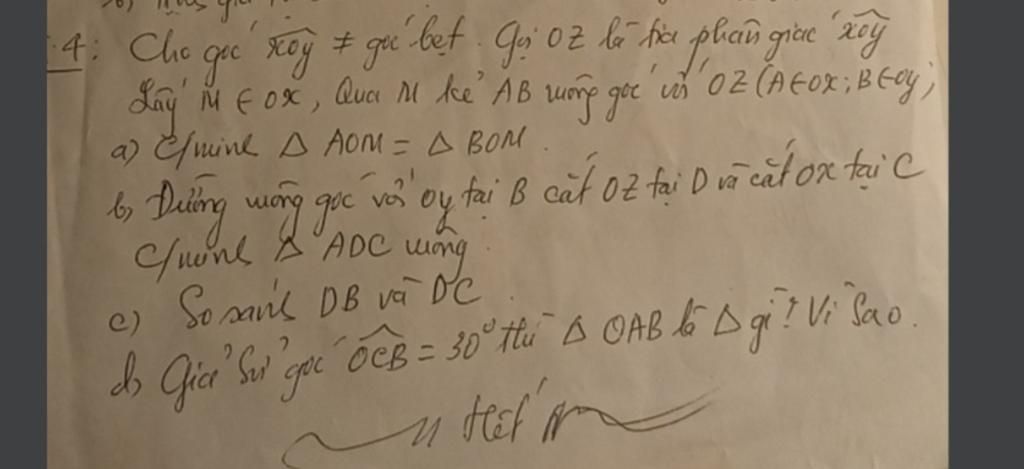 4: Cho góc xOy ≠ góc bẹt. Gọi OZ là tia phân giác xOy
Lấy M ∈ OX, Qua M kẻ AB vuông góc với OZ (A∈OX; B∈Oy)
a) C/minh Δ AOM = Δ BOM.
b, Đường vuông góc với Oy tại B cắt OZ tại D và cắt OX tại C
C/minh Δ ADC vuông.
c) So sánh DB và DC.
d, Giả sử góc OCB = 30° thì Δ OAB là Δ gì? Vì Sao.
Hết